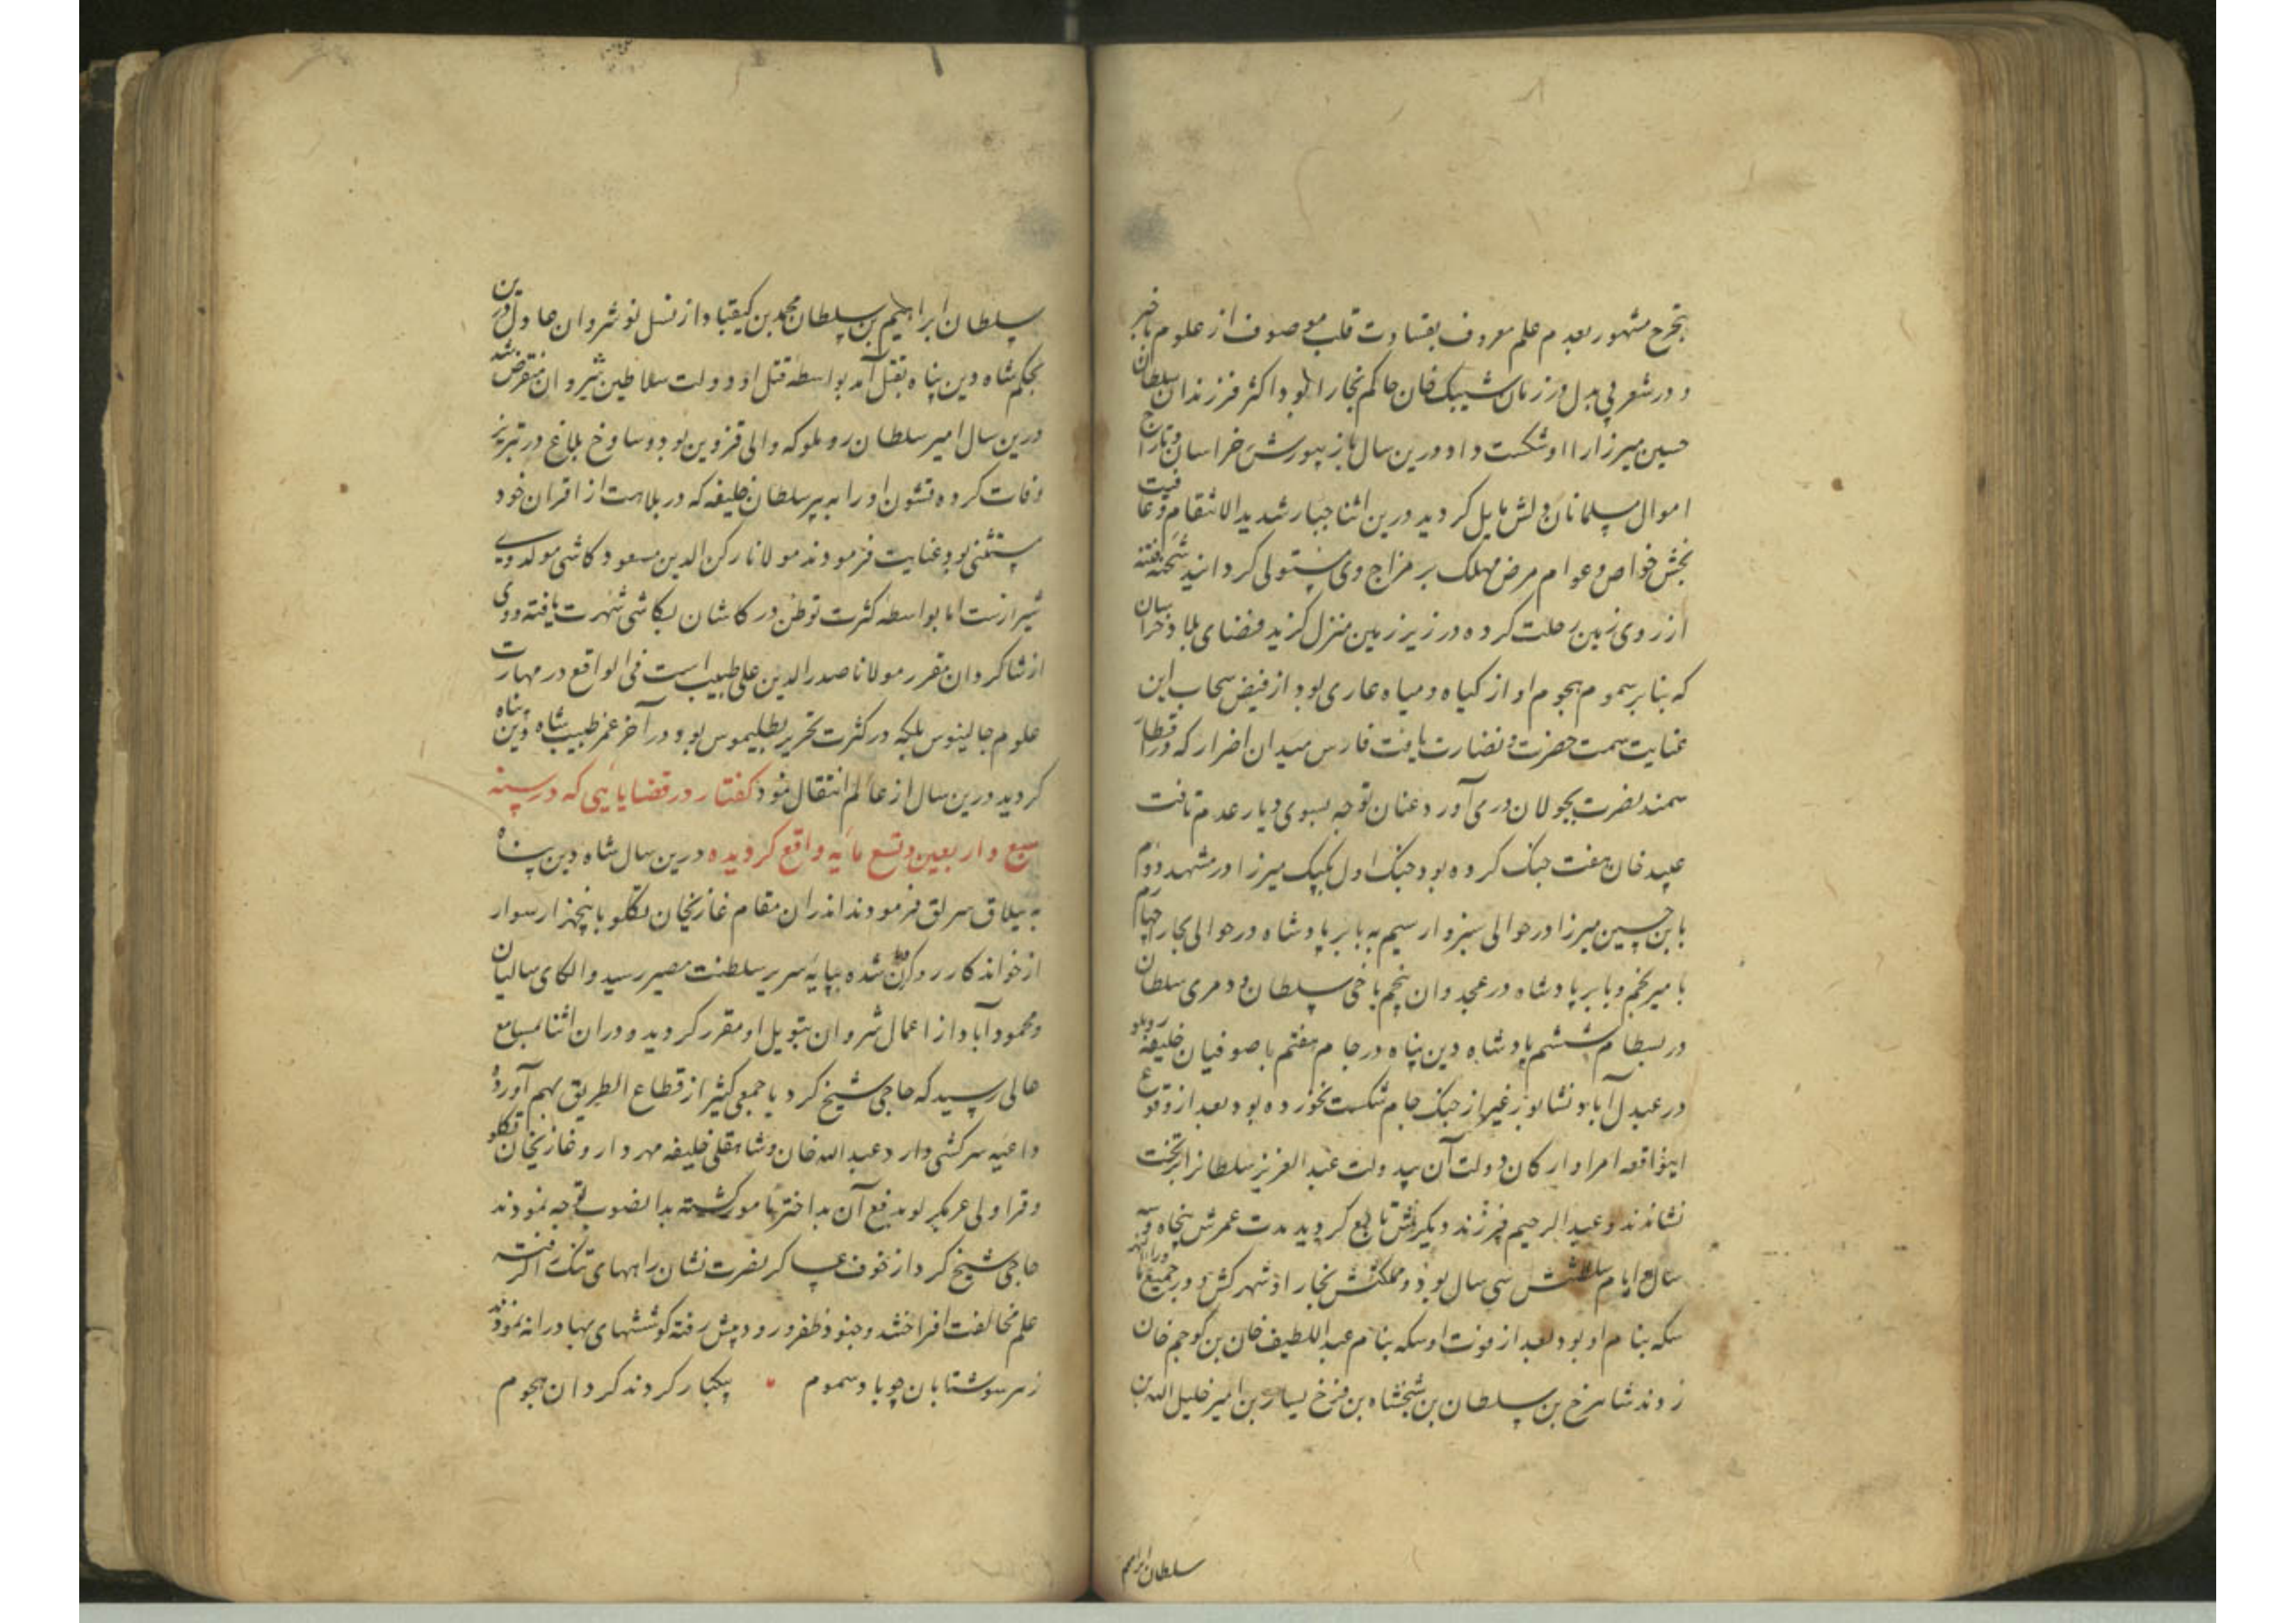 بتجرع مشهور بعدم علم معروف بقساوت قلب موصوف از علوم باخبر
و در شعر بی بدل در زمان شیبک خان حاکم بخارا بود اکثر فرزندان سلطان
حسین میرزا را او شکست داد و درین سال باز بیورش خراسان و تاراج
اموال مسلمانان دلش مایل کردید درین اثنا جبار شدید الانتقام و عافیت
بخش خواص و عوام مرض مهلک بر مزاج وی مستولی کردانید شحنه فتنه
از روی زمین رحلت کرده در زیر زمین منزل کزید فضای بلاد خراسان
که بنابر سموم هجوم او از کیاه و میاه عاری بود از فیض سحاب این
عنایت سمت حضرت و نضارت یافت فارس میدان اضرار که در اقطار
سمند نصرت بجولان دری آورد عنان توجه بسوی دیار عدم تافت
عبید خان هفت جنک کرده بود جنک اول بکپک میرزا در مشهد دوم
بابن حسین میرزا در حوالی سبزوار سیم به بابر پادشاه در حوالی بخارا چهارم
با میر نجم و بابر پادشاه در غجدوان پنجم با خی سلطان و دمری سلطان
در بسطام ششم پادشاه دین پناه در جام هفتم با صوفیان خلیفه روملو
در عبدل آباد نشابور غیر از جنک جام شکست نخورده بود بعد از وقوع
اینواقعه امرا و ارکان دولت آن بیدولت عبد العزیز سلطانرا بر تخت
نشاندند و عبد الرحیم فرزند دیکرش تابع کردید مدت عمرش پنجاه و سه
سال ایام سلطنتش سی سال بود و مملکتش بخارا و شهر کش و در جمیع ماوراءالنهر
سکه بنام او بود بعد از فوت او سکه بنام عبد اللطیف خان بن کوجم خان
زدند شاهرخ بن سلطان بن شیخشاه بن فرخ یسار بن امیر خلیل الله بن
سلطان ابراهیم
سلطان ابراهیم بن سلطان محمد بن کیقباد از نسل نوشروان عادل درین
بحکم شاه دین پناه بقتل آمد بواسطه قتل او دولت سلاطین شروان منقرض شد
درین سال امیر سلطان روملو که والی قزوین بود و ساوخ بلاغ در تبریز
وفات کرده قشون او را به پیر سلطان خلیفه که در بلاهت از اقران خود
مستثنی بود عنایت فرمودند مولانا رکن الدین مسعود کاشی مولد وی
شیرازست اما بواسطه کثرت توطن در کاشان بکاشی شهرت یافته و وی
از شاکردان مقرر مولانا صدر الدین علی طبیب است فی الواقع در مهارت
علوم جالینوس بلکه در کثرت تحریر بطلیموس بود و در آخر عمر طبیب شاه دین پناه
کردید درین سال از عالم انتقال نمود کفتار در قضایایی که در سنه
سبع و اربعین و تسع مایه واقع کردیده درین سال شاه دین پناه
به ییلاق سرلق فرمودند اندران مقام غازیخان تکلو با پنجهزار سوار
از خواندکار روکردان شده بپایه سریر سلطنت مصیر رسید و الکای سالیان
و محمودآباد از اعمال شروان بتویل او مقرر کردید و دران اثنا بمسامع
عالی رسید که حاجی شیخ کرد با جمعی کثیر از قطاع الطریق بهم آورده
داعیه سرکشی دارد عبد الله خان و شاهقلی خلیفه مهردار و غازیخان تکلو
و قراولی عربکرلو بدفع آن بد اختر مامور کشته بدا نصوب توجه نمودند
حاجی شیخ کرد از خوف عساکر نصرت نشان راههای تنک را کرفته
علم مخالفت افراختند و جنود ظفر ورود پیش رفته کوششهای بهادرانه نمودند
ز هر سو شتابان چو باد سموم • بیکبار کردند کردان هجوم